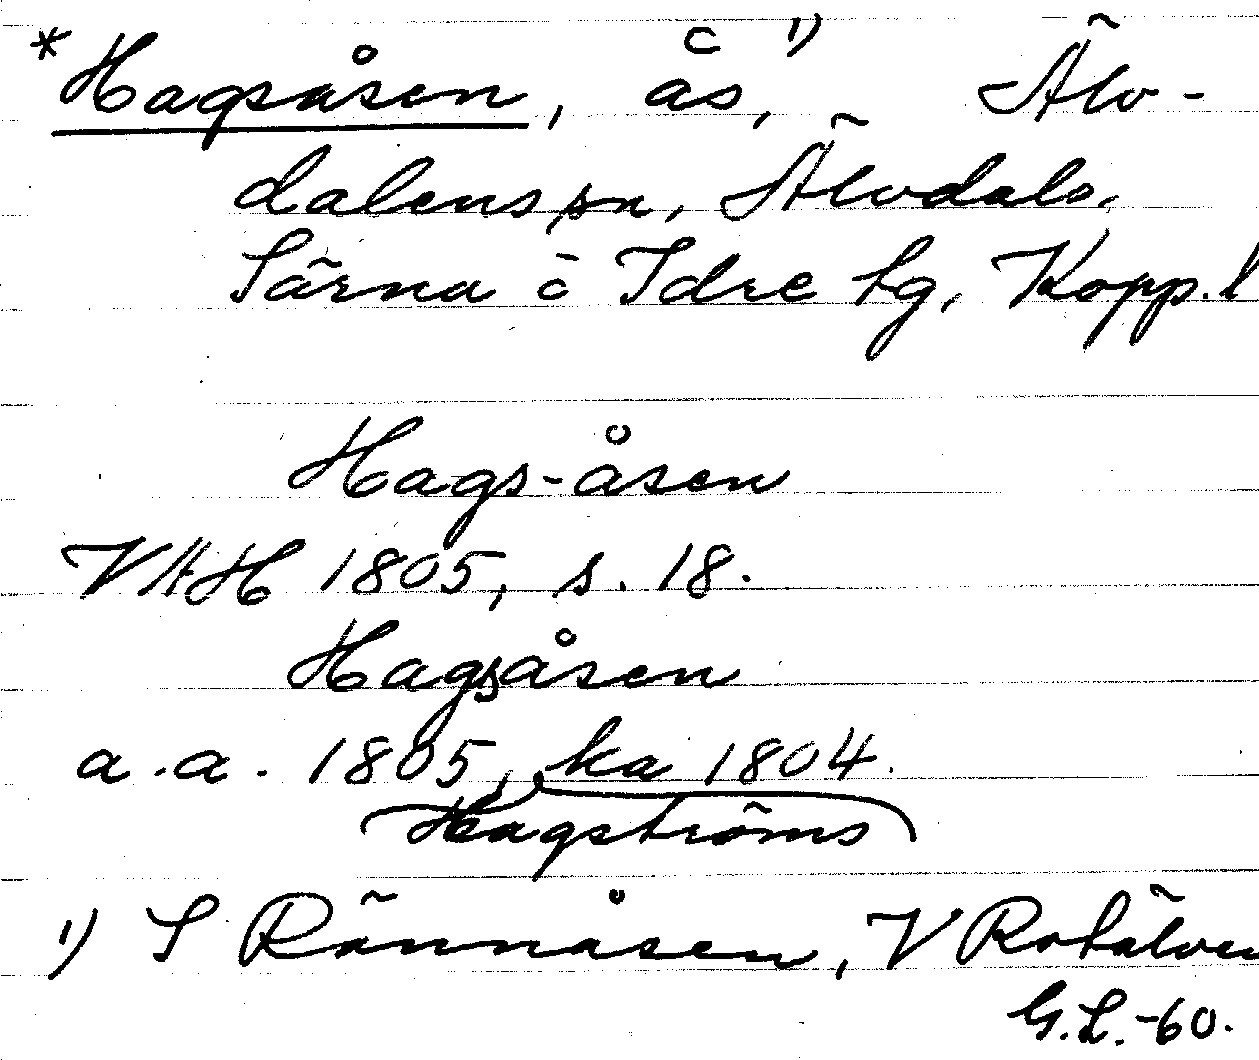 *Hagsåsen, ås, ⊂ 1) Älv-
dalens sn, Älvdals,
Särna o Idre tg, Kopp. l
Hags-åsen
VAH 1805, s. 18.
Hagsåsen
a.a. 1805, ka 1804.
Hagströms
1) S Rännåsen, V Rotälven
G.L. -60.